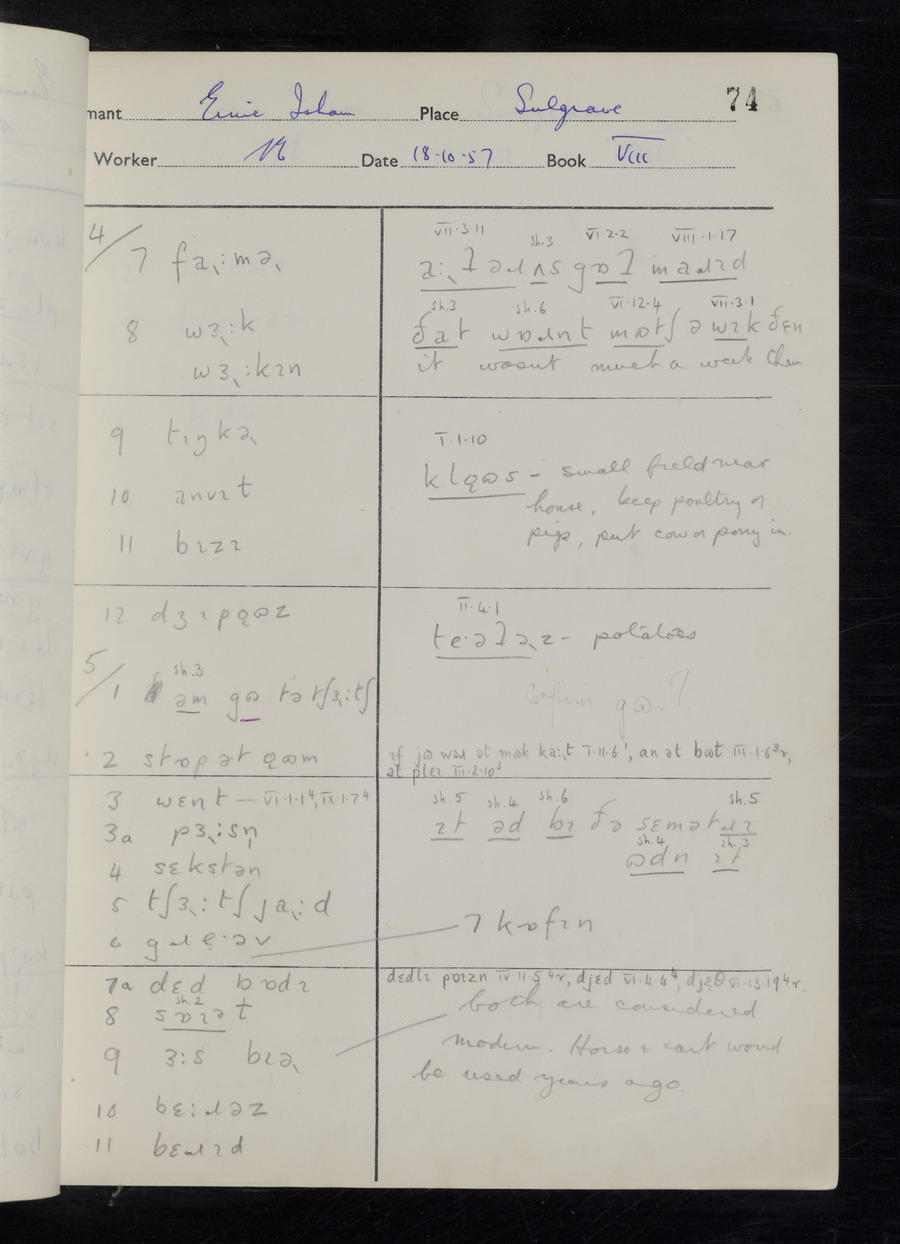 mant Ernie Isham Place Sulgrave 74
Worker Date 18·10·57 Book VIII
4/
7 fa˞ːmə˞
8 wɜ˞ːk
wɜ˞ːkɪn
9 tɪŋkə˞
10 anvɪt
11 bɪzɪ
12 dʒɪpϙɷz
5/
sh.3
1 əm gɷ tə tʃɜ˞ːtʃ
2 stɒp ət ϙɷm
3 wɛnt — VI·1·1⁴, IX·1·7⁴
3a pɜ˞ːsn̩
4 sɛkstən
5 tʃɜ˞ːtʃ ja˞ːd
6 gɹeˑəv
7a dɛd bɒdɪ
sh.2
8 sɒɪət
9 ɜːs bɪə˞
10 bɛːɹəz
11 bɛɹɪd
VII·3·11 sh.3 VI·2·2 VIII·1·17
aː˞ɫ əɹ ʌs gɒɫ maɹɪd
sh.3 sh.6 VI·12·4 VII·3·1
ðat wɒɹnt mɷtʃ ə wɪk ðɛn
it wasnt much a week then
I·1·10
klϙɷs – small field near
house, keep poultry or
pigs, put cow or pony in.
II·4·1
teˑəɫə˞z – potatoes
Confirm gɷ.?
ɪf jɷ was ət mak kaːt I·11·6¹, an ət bɷt III·1·6³r,
ət plɛɪ III·2·10³
sh.5 sh.4 sh.6 sh.5
ɪt əd bɪ ðə sɛmətɹɪ
sh.4 sh.3
ɷdn ɪt
7 kɒfɪn
dɛdlɪ pɒɪzn IV·11·5⁴r, djɛd VI·4·4⁴, djɛθ VI·13·19⁴r.
both are considered
modern. Horse & cart would
be used years ago.